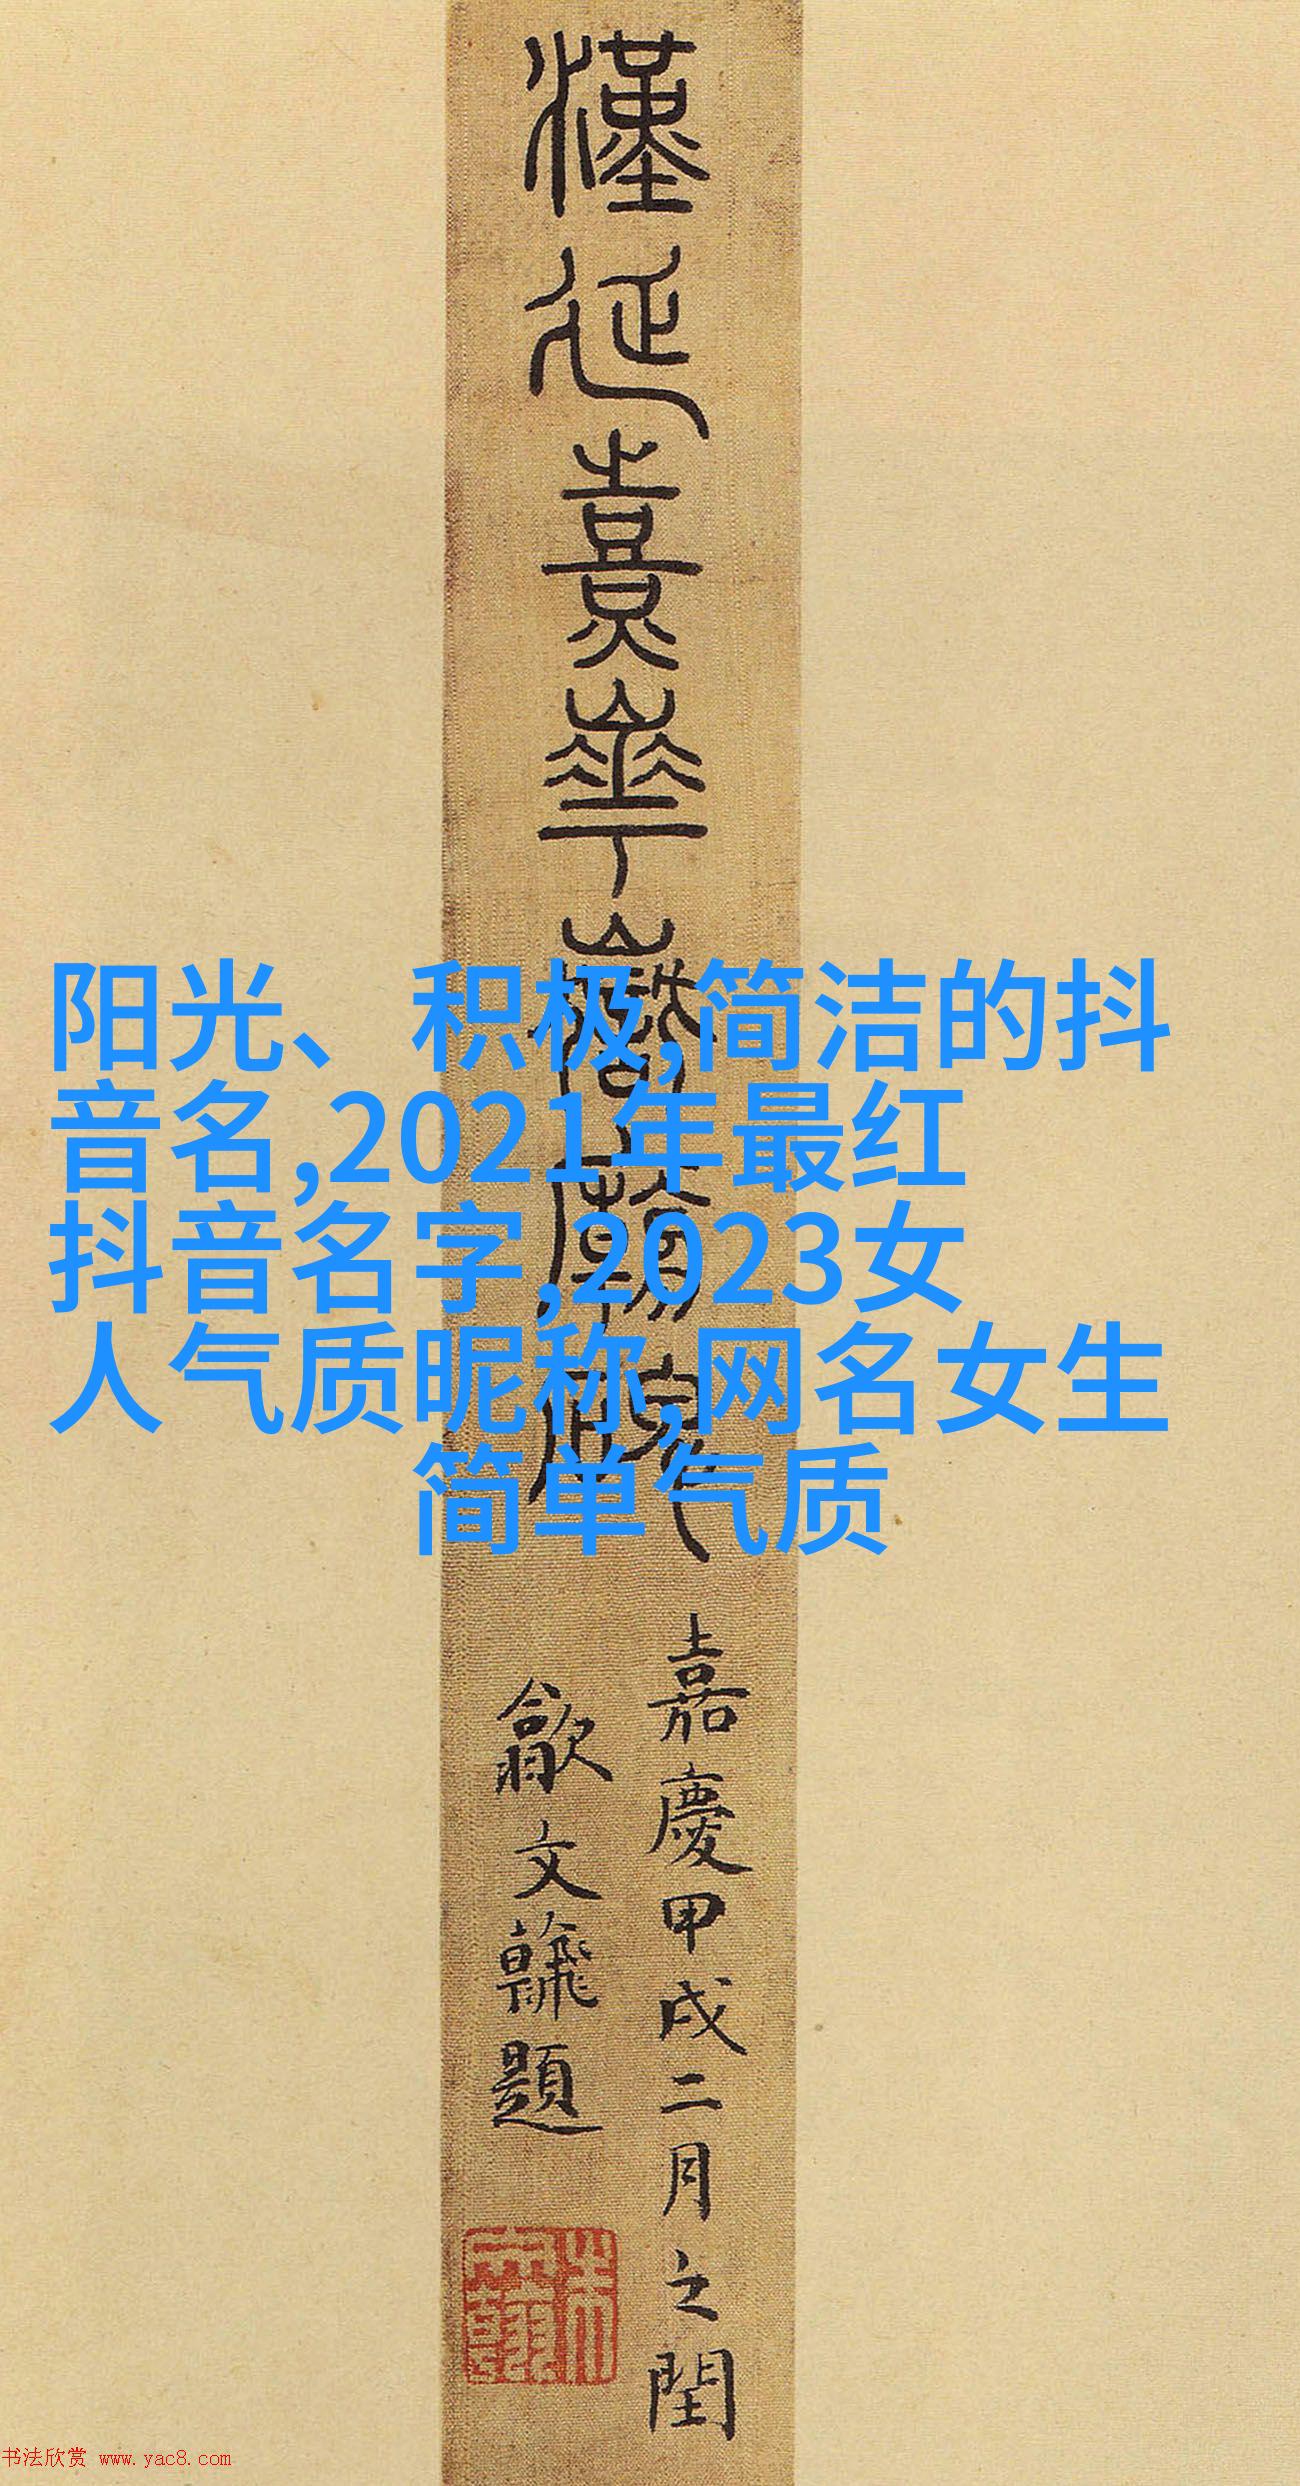 漢延熹華嶽廟碑
嘉慶甲戌二月之閏
歙文𩙪題
阳光、积极,简洁的抖
音名,2021年最红
抖音名字,2023女
人气质昵称,网名女生
简单气质
书法欣赏 www.yac8.com